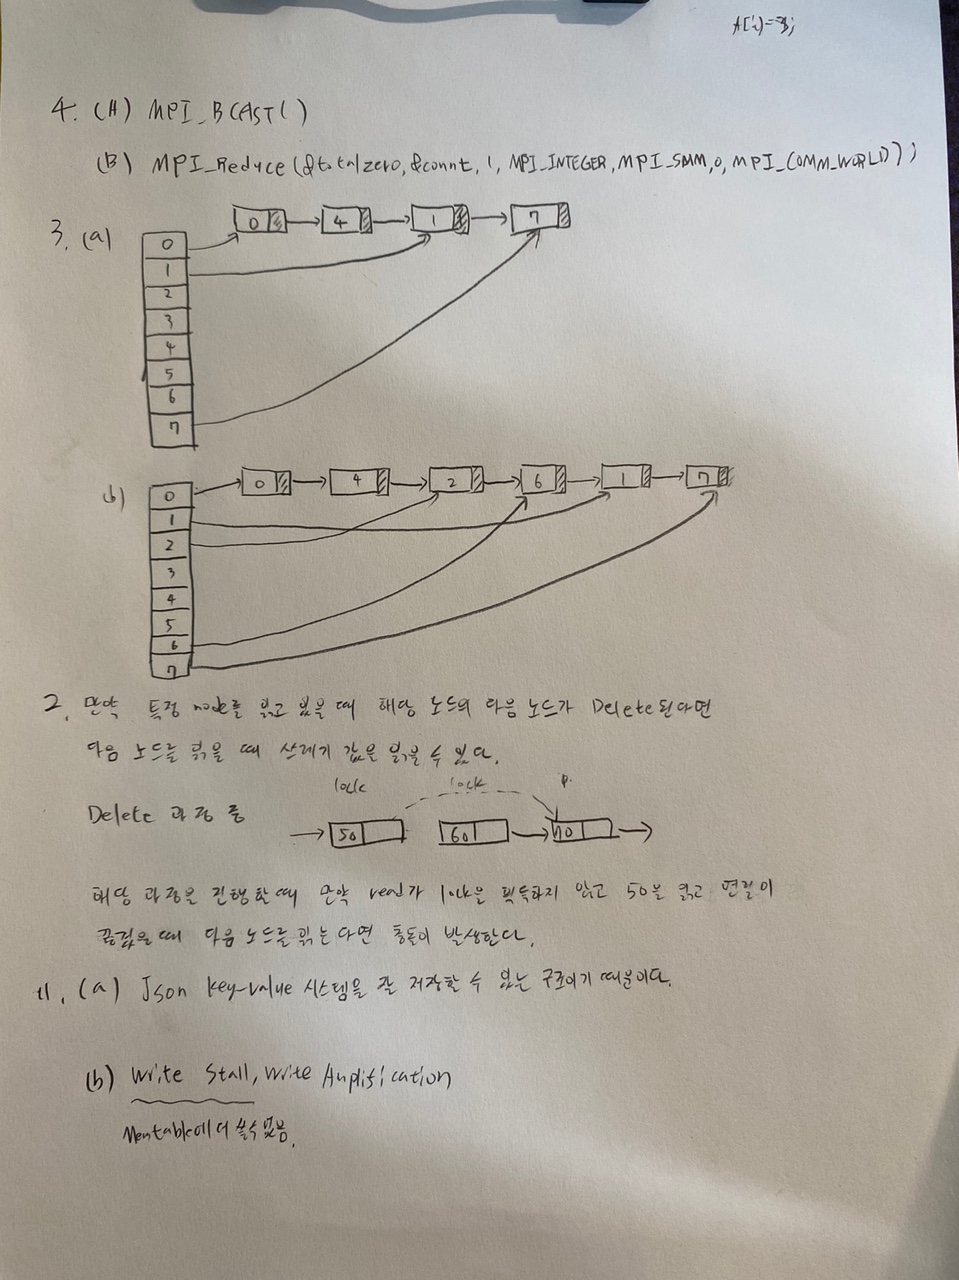 A[i]=3;
4. (A) MPI_BCAST()
(B) MPI_Reduce(&totalzero, &count, 1, MPI_INTEGER, MPI_SUM, 0, MPI_COMM_WORLD);
3. (a)
0 4 1 7
0
1
2
3
4
5
6
7
(b)
0 4 2 6 1 7
0
1
2
3
4
5
6
7
2. 만약 특정 node를 읽고 있을 때 해당 노드의 다음 노드가 Delete된다면
다음 노드를 읽을 때 쓰레기 값을 읽을 수 있다.
lock lock p.
Delete 과정 중
50 60 70
해당 과정을 진행할때 만약 read가 lock을 획득하지 않고 50을 읽고 연결이
끊겼을때 다음 노드를 읽는다면 충돌이 발생한다.
11. (a) Json key-value 시스템을 잘 저장할 수 있는 구조이기 때문이다.
(b) Write Stall, Write Amplification
Memtable에 더 쓸수 없음.